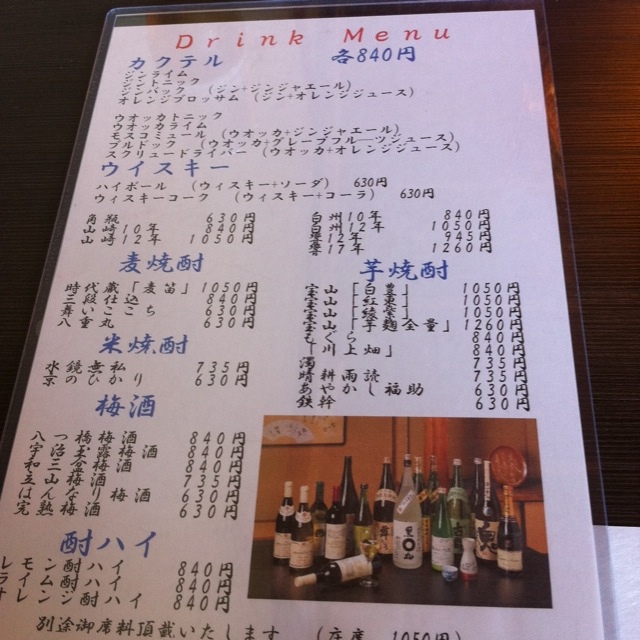 Drink Menu
カクテル 各840円
ジンライム
ジントニック
ジンバック (ジン+ジンジャエール)
オレンジブロッサム (ジン+オレンジジュース)
ウオッカトニック
ウオッカライム
モスコミュール (ウオッカ+ジンジャエール)
ブルドック (ウオッカ+グレープフルーツジュース)
スクリュードライバー (ウオッカ+オレンジジュース)
ウイスキー
ハイボール (ウィスキー+ソーダ) 630円
ウィスキーコーク (ウィスキー+コーラ) 630円
角瓶 630円
山崎10年 840円
山崎12年 1050円
白州10年 840円
白州12年 1050円
響12年 945円
響17年 1260円
麦焼酎
時代蔵「麦笛」 1050円
三段仕込 840円
舞いここち 630円
八重丸 630円
米焼酎
水鏡無私 735円
京のひかり 630円
梅酒
八つ橋梅酒 840円
宇治玉露梅酒 840円
梅酒 840円
立山梅酒 735円
はんなり梅酒 630円
完熟梅酒 630円
酎ハイ
レモン酎ハイ 840円
ライム酎ハイ 840円
オレンジ酎ハイ 840円
芋焼酎
宝山「白豊」 1050円
宝山「紅 」 1050円
宝山「綾紫」 1050円
宝山「芋麹全量」 1260円
840円
川上畑」 840円
735円
晴耕雨読 735円
あやかし福助 630円
鉄幹 630円
別途御席料頂戴いたします (庄席 1050円)